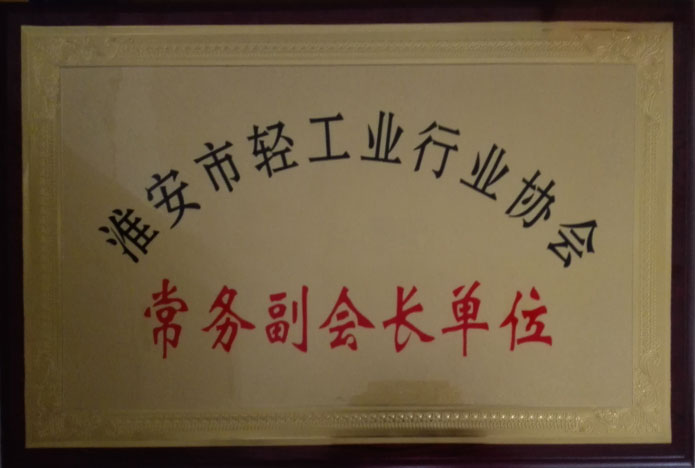 淮安市轻工业行业协会
常务副会长单位